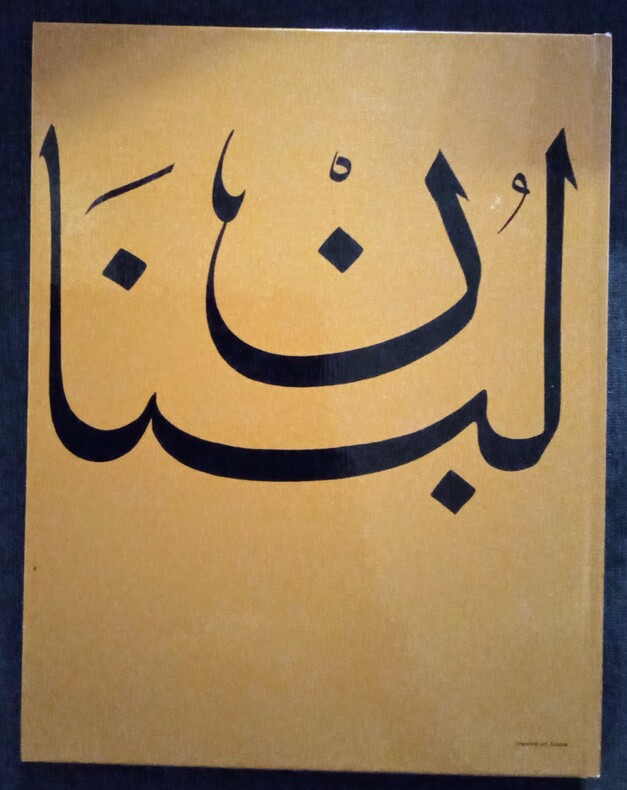 لُبْنَان
Imprimé en Suisse